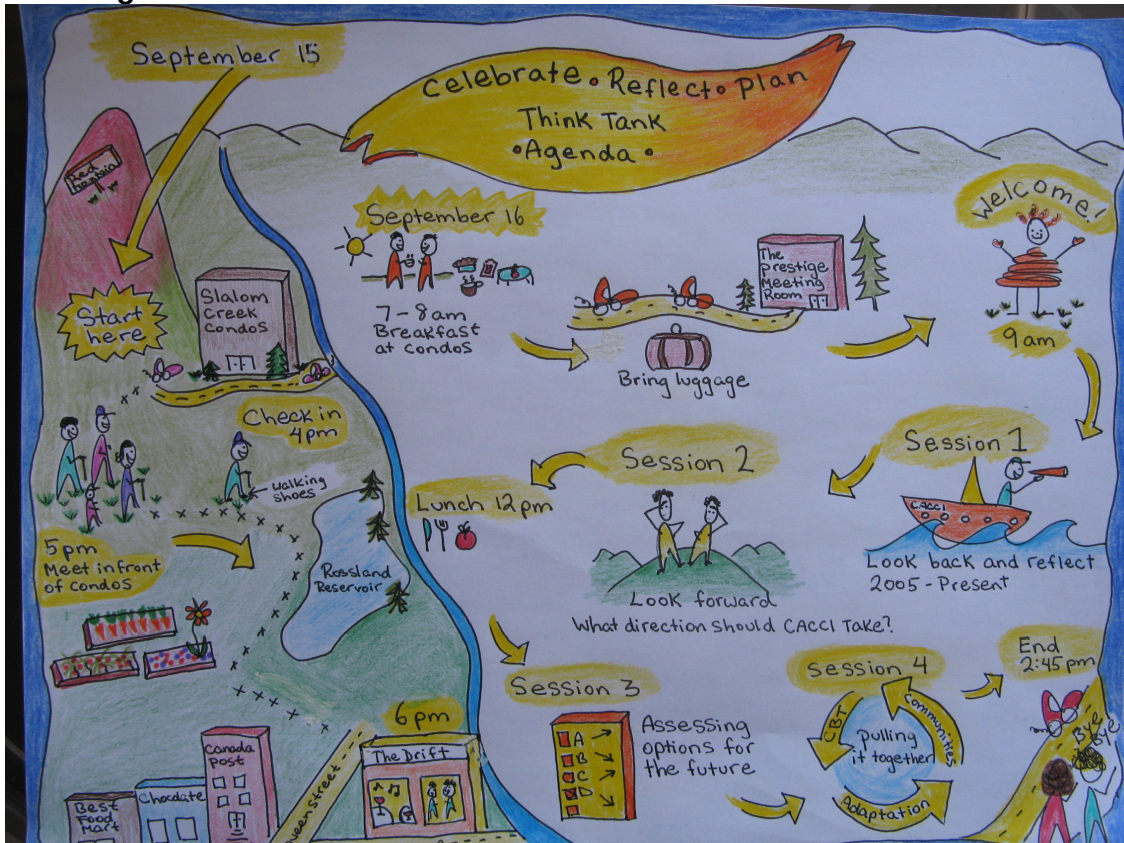 September 15
Celebrate • Reflect • Plan
Think Tank
• Agenda •
Red
Start
here
Slalom
Creek
Condos
Check in
4pm
walking
shoes
5pm
Meet in front
of condos
Rossland
Reservoir
6pm
The Drift
Canada
post
Chocolate
Best
Food
Mart
ueen street
September 16
7-8am
Breakfast
at condos
The
prestige
Meeting
Room
Bring luggage
Welcome!
9am
Session 1
CACCI
Look back and reflect
2005 - Present
Session 2
Look forward
What direction should CACCI Take?
Lunch 12pm
Session 3
A
B
C
D
Assessing
options for
the future
Session 4
CBT
Communities
Adaptation
pulling
it together
End
2:45pm
Bye
Bye